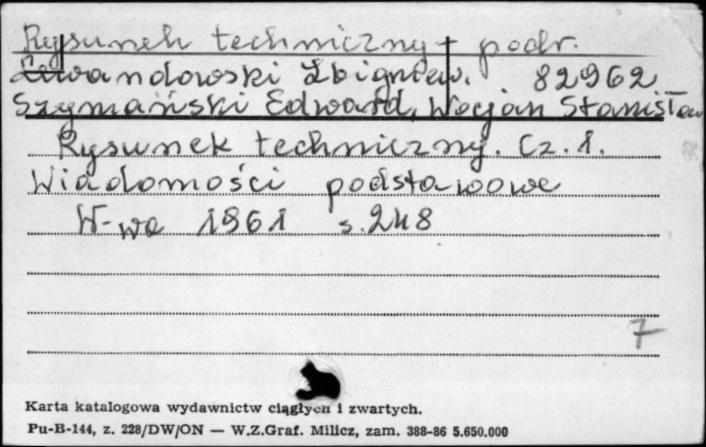 Rysunek techniczny - podr.
Lewandowski Zbigniew. 82962
Szymański Edward, Wocjan Stanisław
Rysunek techniczny. Cz. 1.
Wiadomości podstawowe
W-wa 1961 s. 248
7
Karta katalogowa wydawnictw ciągłych i zwartych.
Pu-B-144, z. 228/DW/ON — W.Z.Graf. Milicz, zam. 388-86 5.650.000